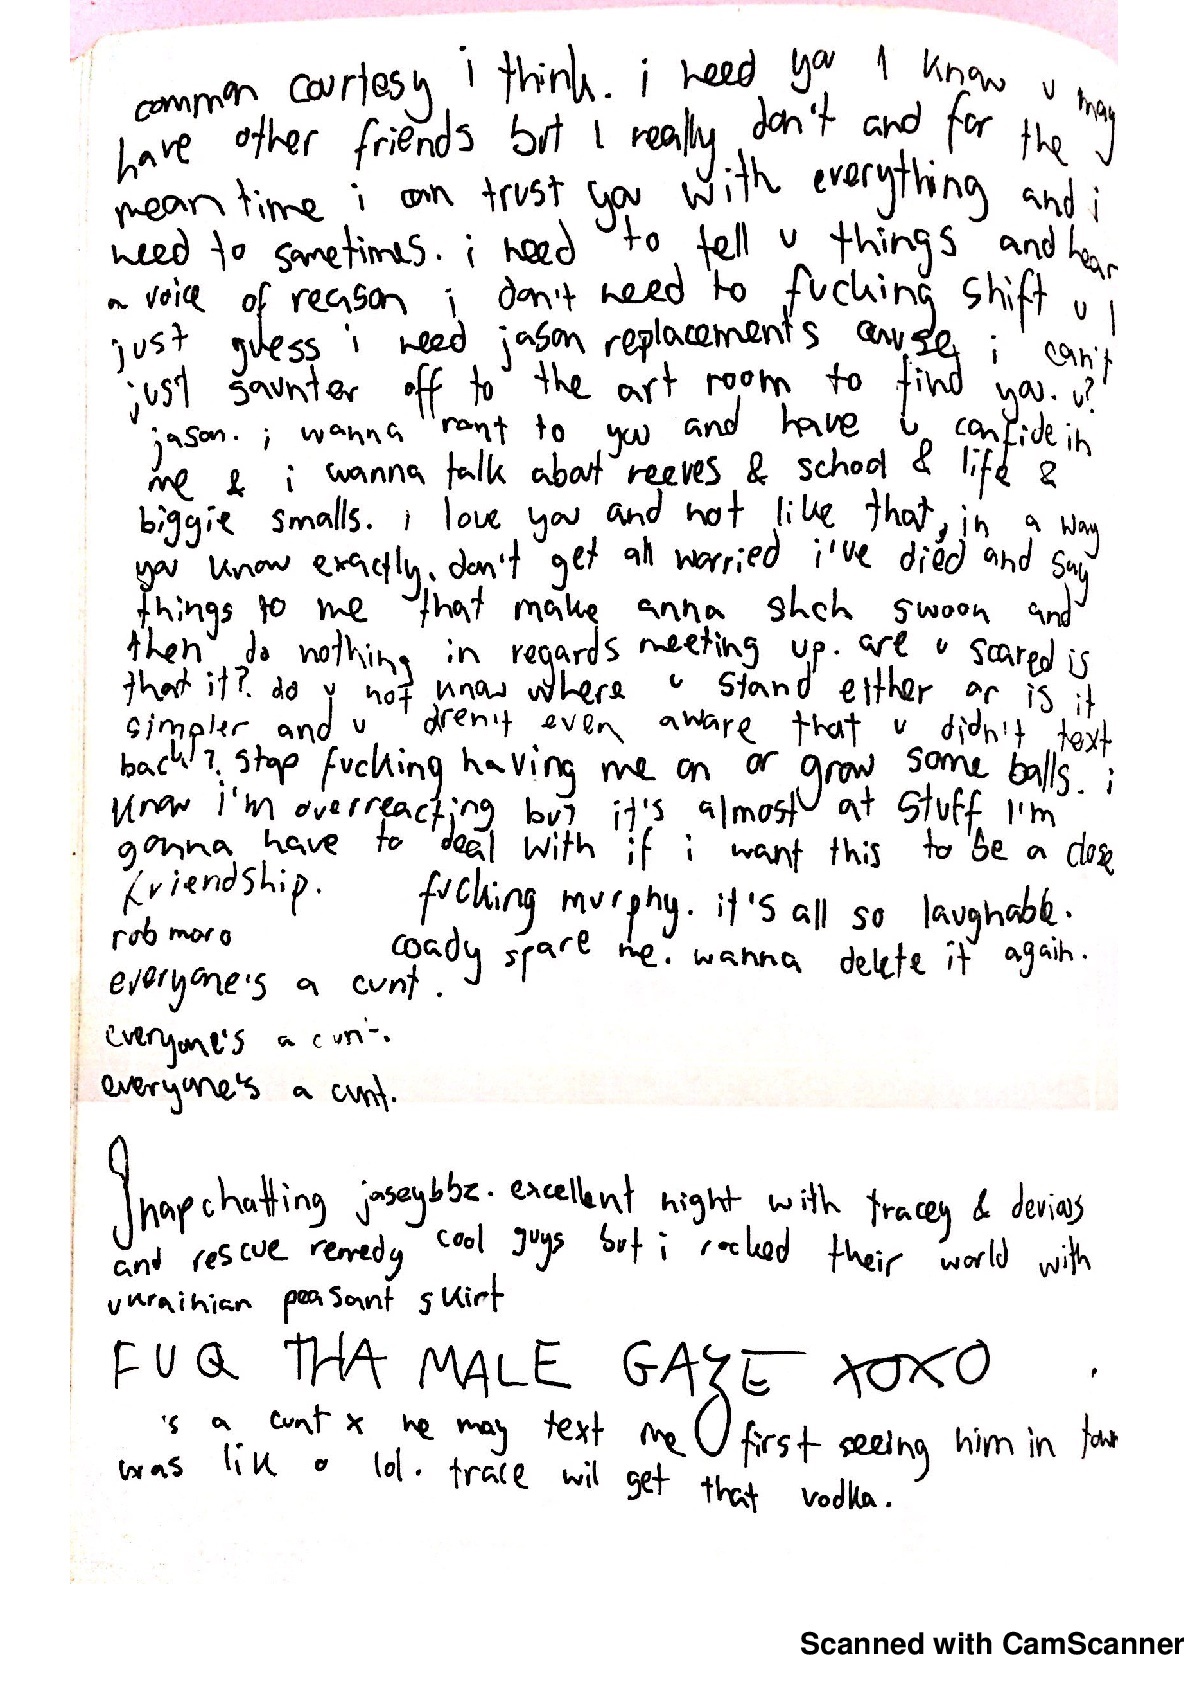 common courtesy i think. i need you I know u may
have other friends but I really don't and for the
mean time i can trust you with everything and i
need to sometimes. i need to tell u things and hear
a voice of reason i don't need to fucking shift u I
just guess i need jason replacements cause i can't
just saunter off to the art room to find you. u?
jason. i wanna rant to you and have u confide in
me & i wanna talk about reeves & school & life &
biggie smalls. i love you and not like that, in a way
you know exactly. don't get all worried i've died and say
things to me that make anna shch swoon and
then do nothing in regards meeting up. are u scared is
that it? do u not know where u stand either or is it
simpler and u aren't even aware that u didn't text
back? stop fucking having me on or grow some balls. i
know i'm overreacting but it's almost at stuff I'm
gonna have to deal with if i want this to be a close
friendship. fucking murphy. it's all so laughable.
rob maro coady spare me. wanna delete it again.
everyone's a cunt.
everyone's a cunt.
everyone's a cunt.
Snapchatting jaseybbz. excellent night with tracey & devious
and rescue remedy cool guys but i rocked their world with
ukrainian peasant skirt
FUQ THA MALE GAZE XOXO
's a cunt x he may text me first seeing him in town
was lik a lol. trace wil get that vodka.
Scanned with CamScanner